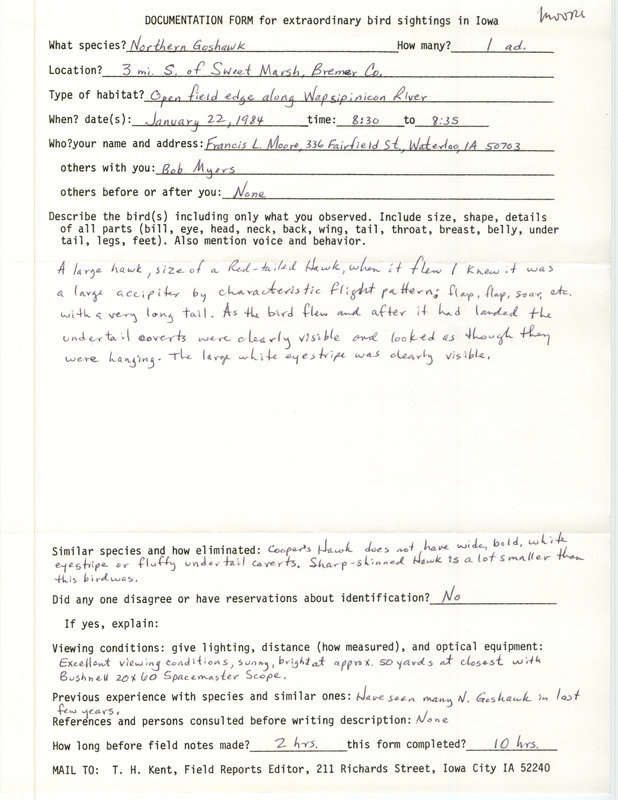 DOCUMENTATION FORM for extraordinary bird sightings in Iowa
Moore
What species? Northern Goshawk How many? 1 ad.
Location? 3 mi. S. of Sweet Marsh, Bremer Co.
Type of habitat? Open field edge along Wapsipinicon River
When? date(s): January 22, 1984 time: 8:30 to 8:35
Who?your name and address: Francis L. Moore, 336 Fairfield St., Waterloo, IA 50703
others with you: Bob Myers
others before or after you: None
Describe the bird(s) including only what you observed. Include size, shape, details
of all parts (bill, eye, head, neck, back, wing, tail, throat, breast, belly, under
tail, legs, feet). Also mention voice and behavior.
A large hawk, size of a Red-tailed Hawk, when it flew I knew it was
a large accipiter by characteristic flight pattern; flap, flap, soar, etc.
with a very long tail. As the bird flew and after it had landed the
undertail coverts were clearly visible and looked as though they
were hanging. The large white eyestripe was clearly visible.
Similar species and how eliminated: Cooper's Hawk does not have wide, bold, white
eyestripe or fluffy undertail coverts. Sharp-shinned Hawk is a lot smaller than
this bird was.
Did any one disagree or have reservations about identification? No
If yes, explain:
Viewing conditions: give lighting, distance (how measured), and optical equipment:
Excellent viewing conditions, sunny, bright at approx. 50 yards at closest with
Bushnell 20x60 Spacemaster Scope.
Previous experience with species and similar ones: Have seen many N. Goshawk in last
few years.
References and persons consulted before writing description: None
How long before field notes made? 2 hrs. this form completed? 10 hrs.
MAIL TO: T. H. Kent, Field Reports Editor, 211 Richards Street, Iowa City IA 52240